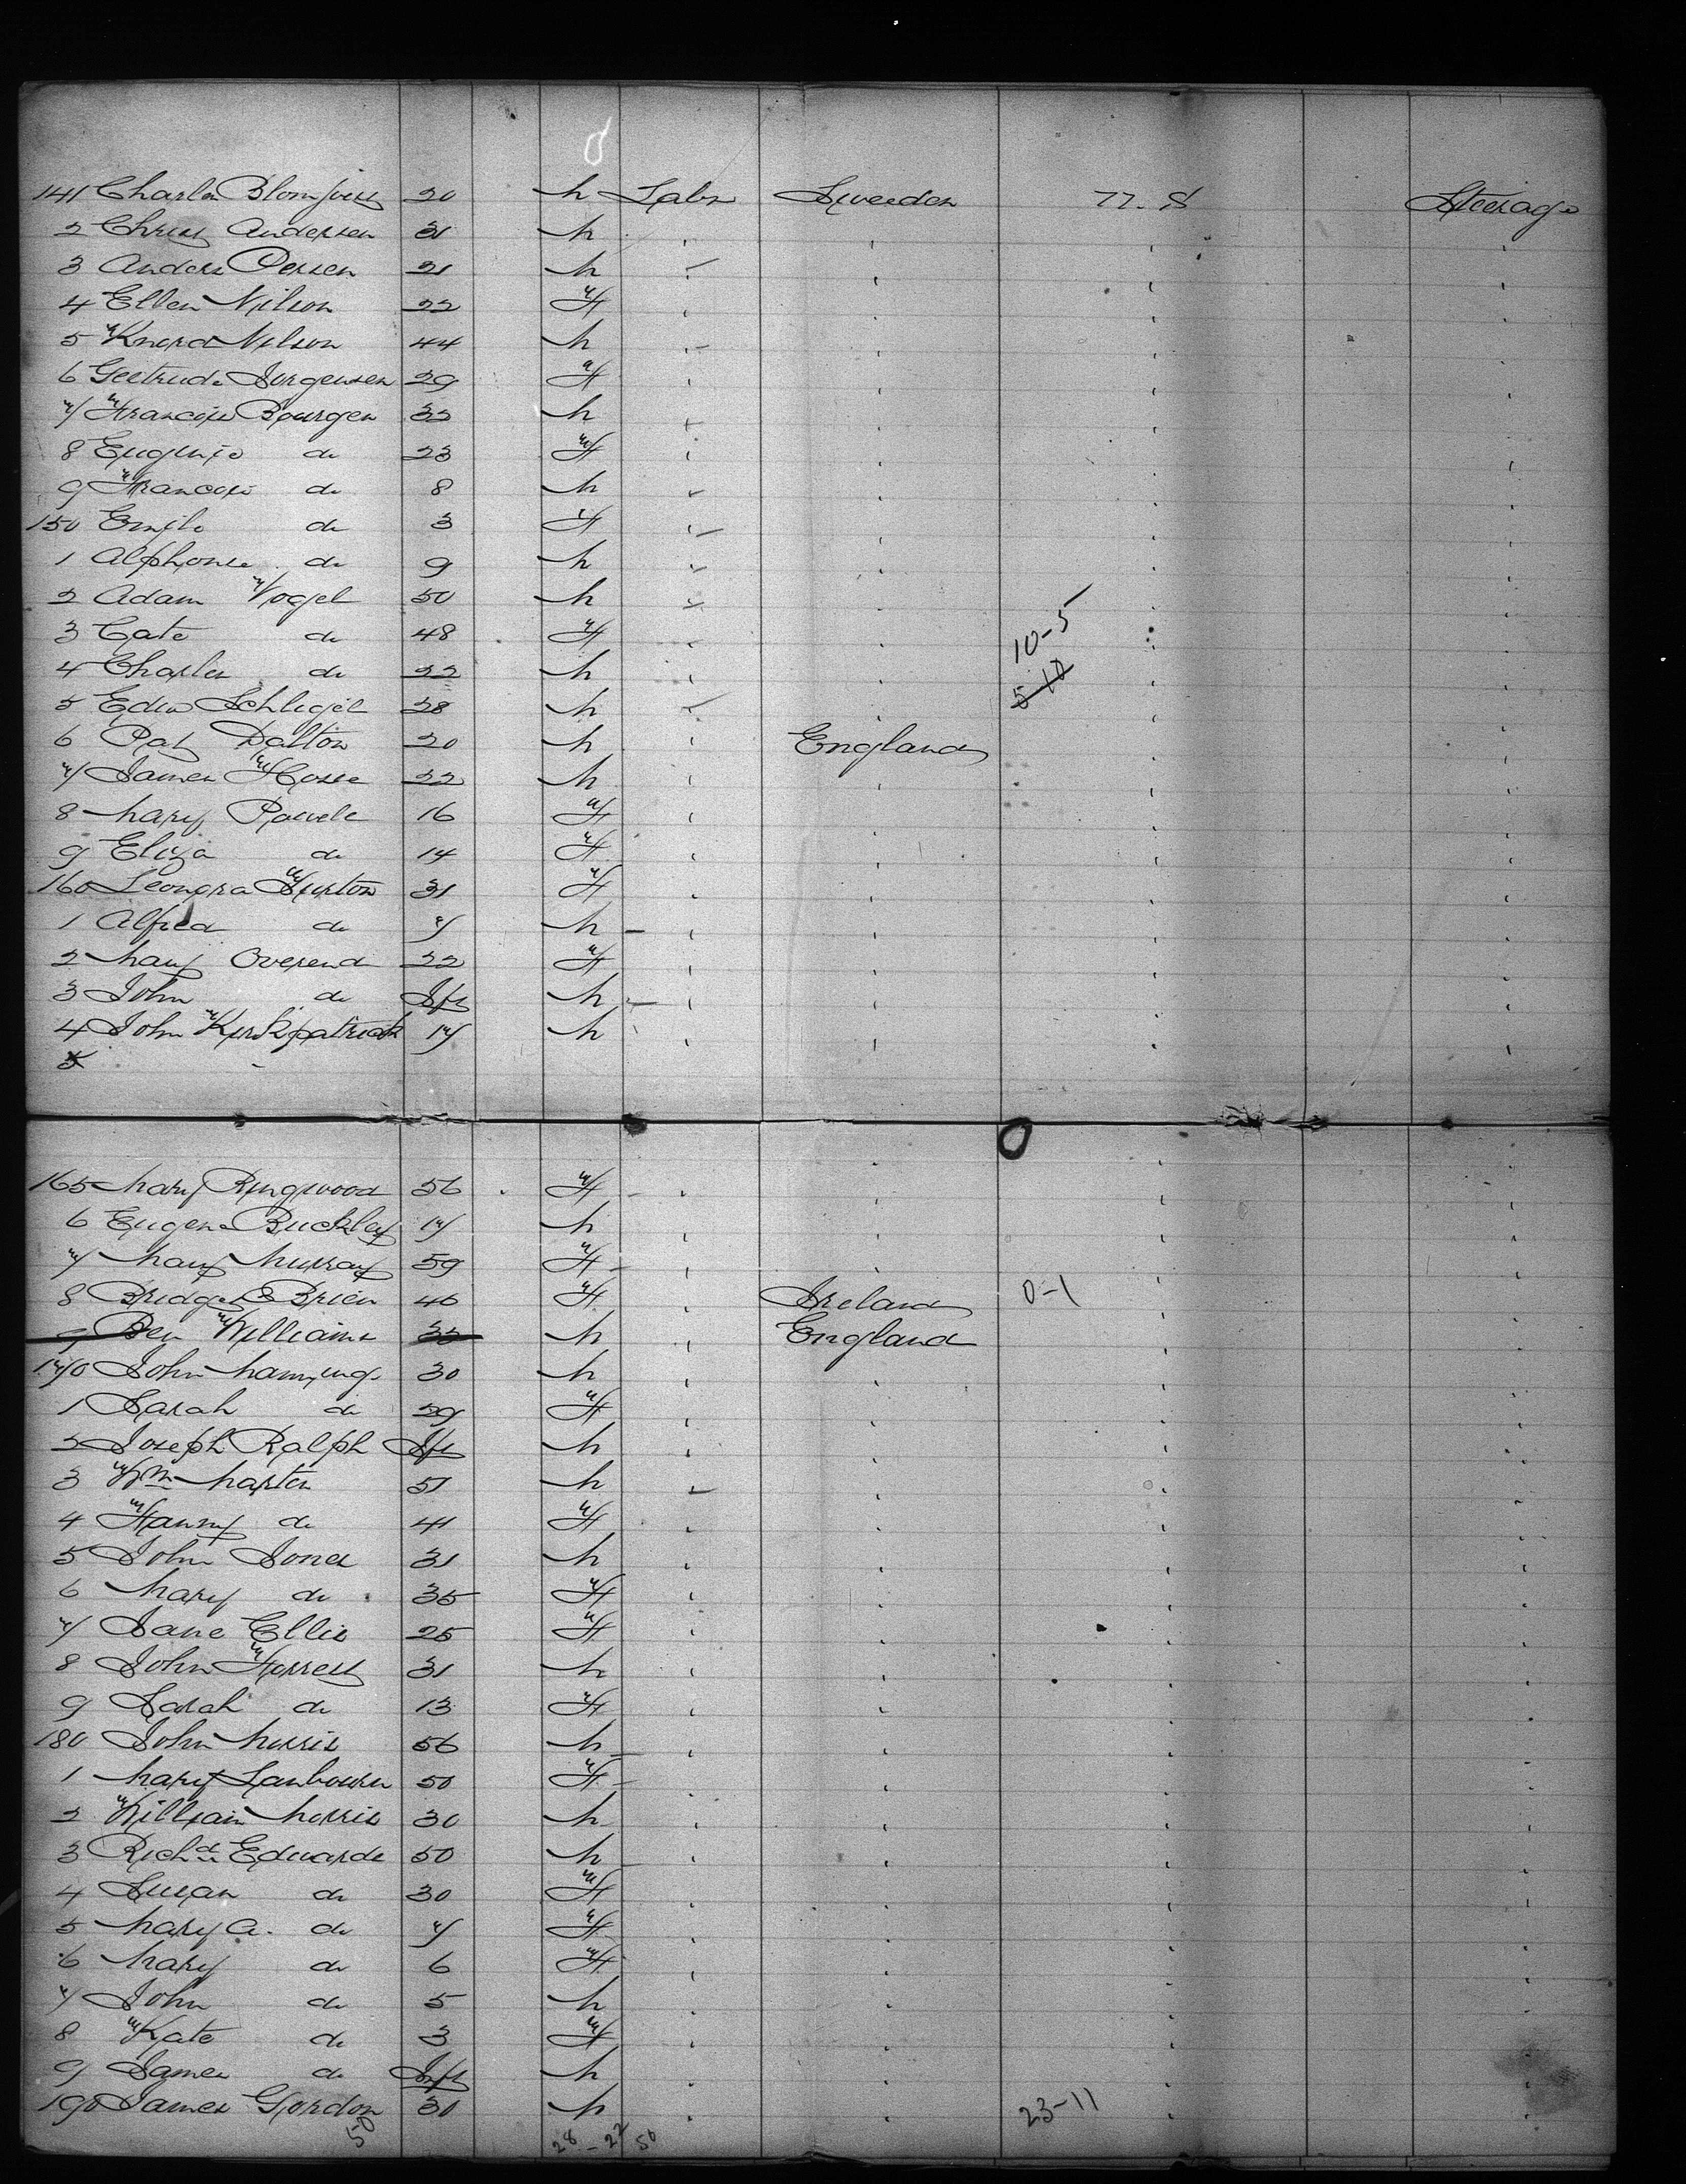 141 Charles Blomqvist 20 M Labr Sweeden U. S Steerage
2 Christ Andersen 31 M
3 Anders Persen 21 M
4 Ellen Nilson 22 F
5 Nelson 44 M
6 Geetrude Jorgensen 29 F
7 Francois Bourgen 32 M
8 Eugenie do 23 F
9 Francois do 8 M
150 Emile do 3 F
1 Alphonse do 9 M
2 Adam Vogel 50 M
3 Cate do 48 F 10-5
4 Charles do 22 M 5-10
5 Edw Schlegel 28 M
6 Pat Dalton 20 M England
7 James 22 M
8 Mary Powele 16 F
9 Eliza do 14 F
160 Leonora 31 F
1 Alfred do 7 M
2 Mary Overend 22 F
3 John do Inft M
4 John Kirkpatrick 17 M
5
165 Mary Ringwood 56 F
6 Eugene Buckley 17 M
7 Mary Murray 59 F
8 Bridget OBrien 40 F Ireland 0-1
9 Ben Williams 32 M England
170 John Manning 30 M
1 Sarah do 29 F
2 Joseph Ralph Inft M
3 Wm Marten 51 M
4 Fanny do 41 F
5 John Jones 31 M
6 Mary do 35 F
7 Jane Ellis 25 F
8 John Forrest 31 M
9 Sarah do 13 F
180 John Morris 56 M
1 Mary Lanbourn 50 F
2 William Morris 30 M
3 Richd Edwards 50 M
4 Susan do 30 F
5 Mary A. do 7 F
6 Mary do 6 F
7 John do 5 M
8 Kate do 3 F
9 James do Inft M
190 James Gordon 30 M 23-11
50 28-22 50